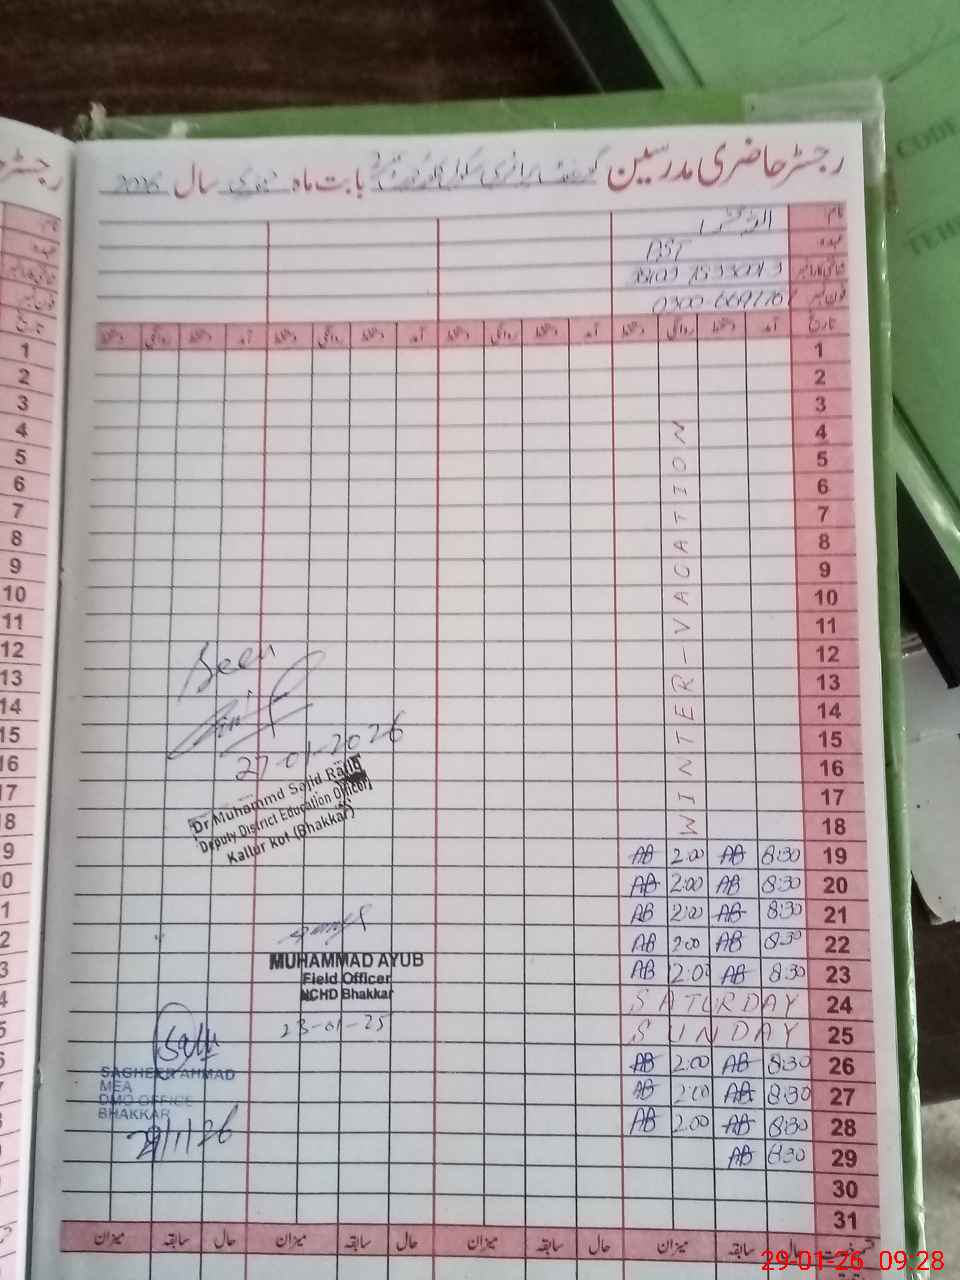 رجسٹر حاضری مدرسین گورنمنٹ پرائمری سکول بابت ماہ جنوری سال 2026
نام
عہدہ PST
شناختی کارڈ نمبر
فون نمبر
تاریخ آمد دستخط روانگی دستخط آمد دستخط روانگی دستخط آمد دستخط روانگی دستخط آمد دستخط روانگی دستخط
1
2
3
4
5
6
7
8
9
10
11
12
13
14
15
16
17
18
WINTER-VACATION
19 8:30 AB 2:00 AB
20 8:30 AB 2:00 AB
21 8:30 AB 2:00 AB
22 8:30 AB 2:00 AB
23 8:30 AB 2:00 AB
24 SATURDAY
25 SUNDAY
26 8:30 AB 2:00 AB
27 8:30 AB 2:00 AB
28 8:30 AB 2:00 AB
29 8:30 AB
30
31
حال سابقہ میزان حال سابقہ میزان حال سابقہ میزان حال سابقہ میزان
Seen
27-01-2026
Dr Muhammd Sajid Rafiq
Deputy District Education Officer
Kallur kot (Bhakkar)
MUHAMMAD AYUB
Field Officer
NCHD Bhakkar
23-01-25
SAGHEER AHMAD
MEA
DMO OFFICE
BHAKKAR
29/1/26
CODE
TEH
29-01-26 09:28